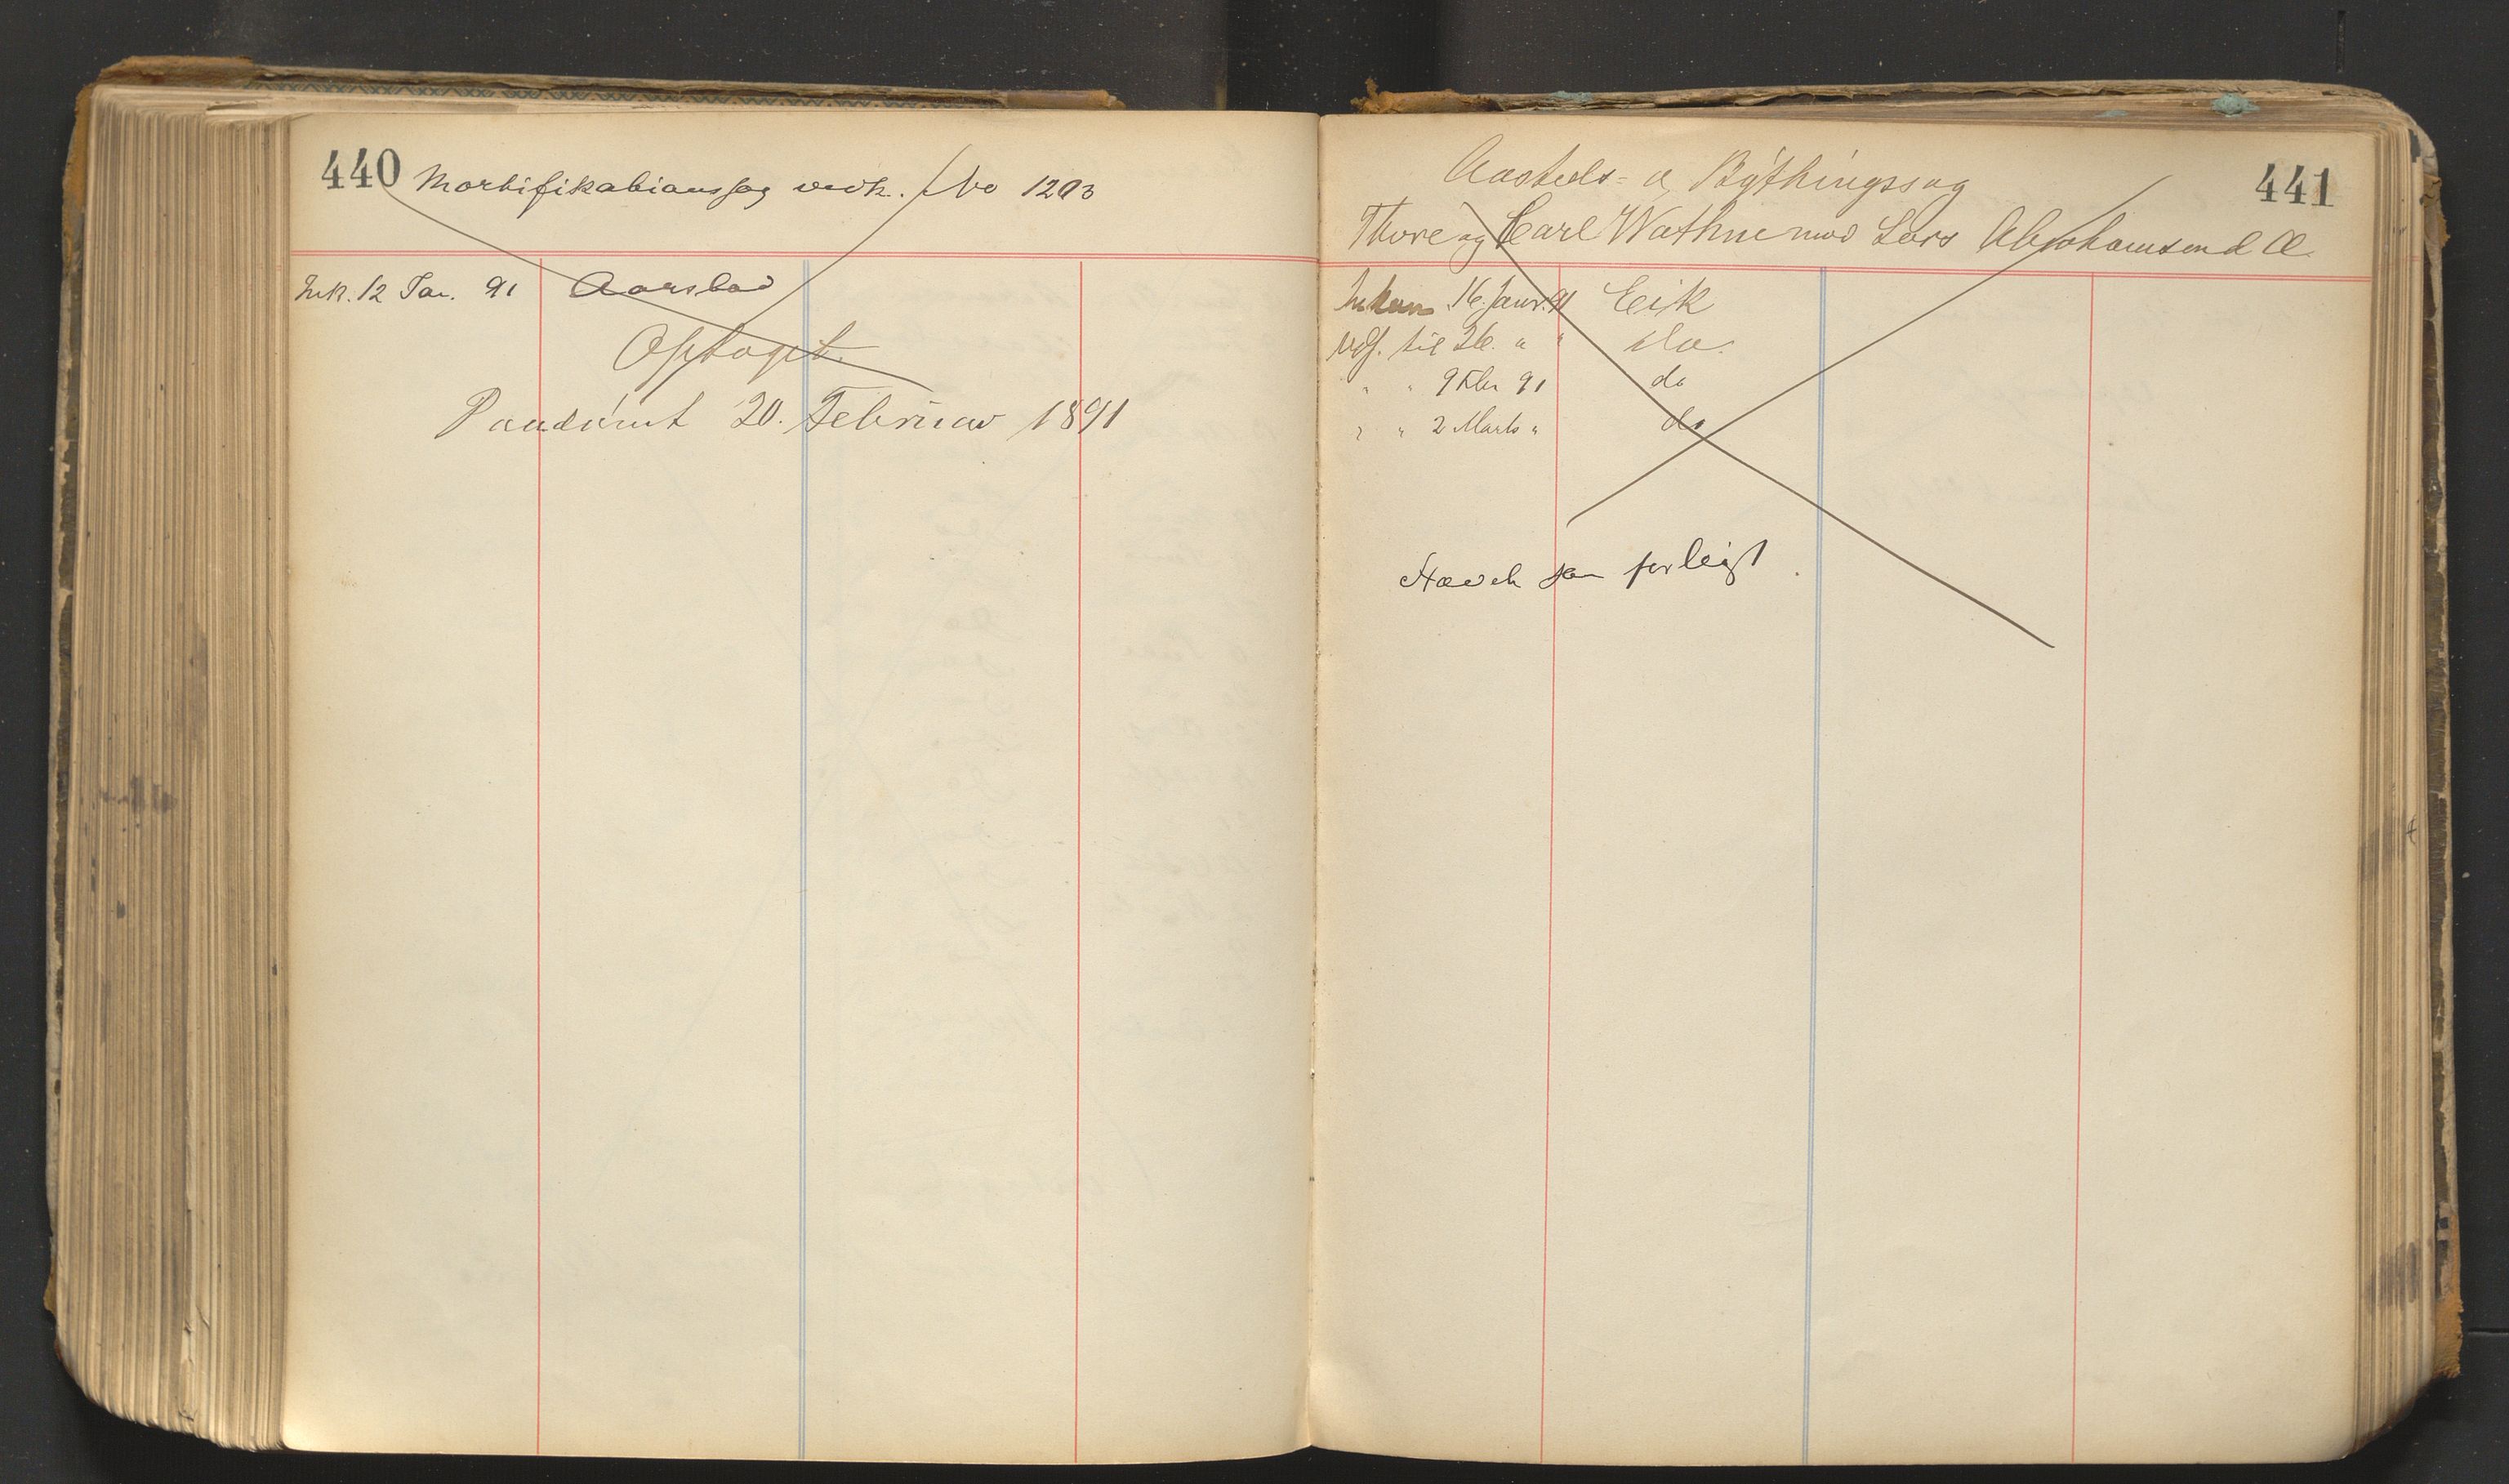 440
Mortifikationssag vedk. No 1203
Ink. 12 Jan. 91 Aarstad
Optaget.
Paadömt 20. Februar 1891
441
Aasteds- & Bythingssag
Thore og Carl Wathne mod Lars Abrahamsen d Æ.
Inkom 16 Janr. 91 Eik
Uds. til 26. " " do.
" " 9 Fbr 91 do
" " 2 Marts " do
Hævet som forligt.